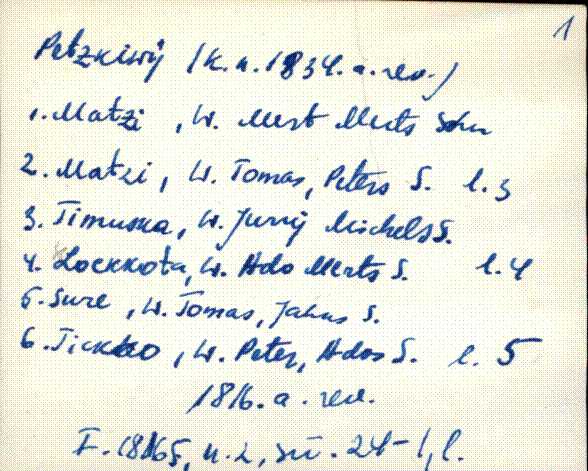 1
Petzkiwij (k.n. 1834. a. rev.)
1. Matzi, W. Mert Merts Sohn
2. Matzi, W. Tomas, Peters S. l. 3
3. Timuska, W. Jurrij Michels S.
4. Lockkota, W. Ado Merts S. l. 4
5. Sure, W. Tomas, Jahns S.
6. Tickko, W. Peter, Ados S. l. 5
1816. a. rev.
F. 1865, n. 2, sü. 24-1, l.